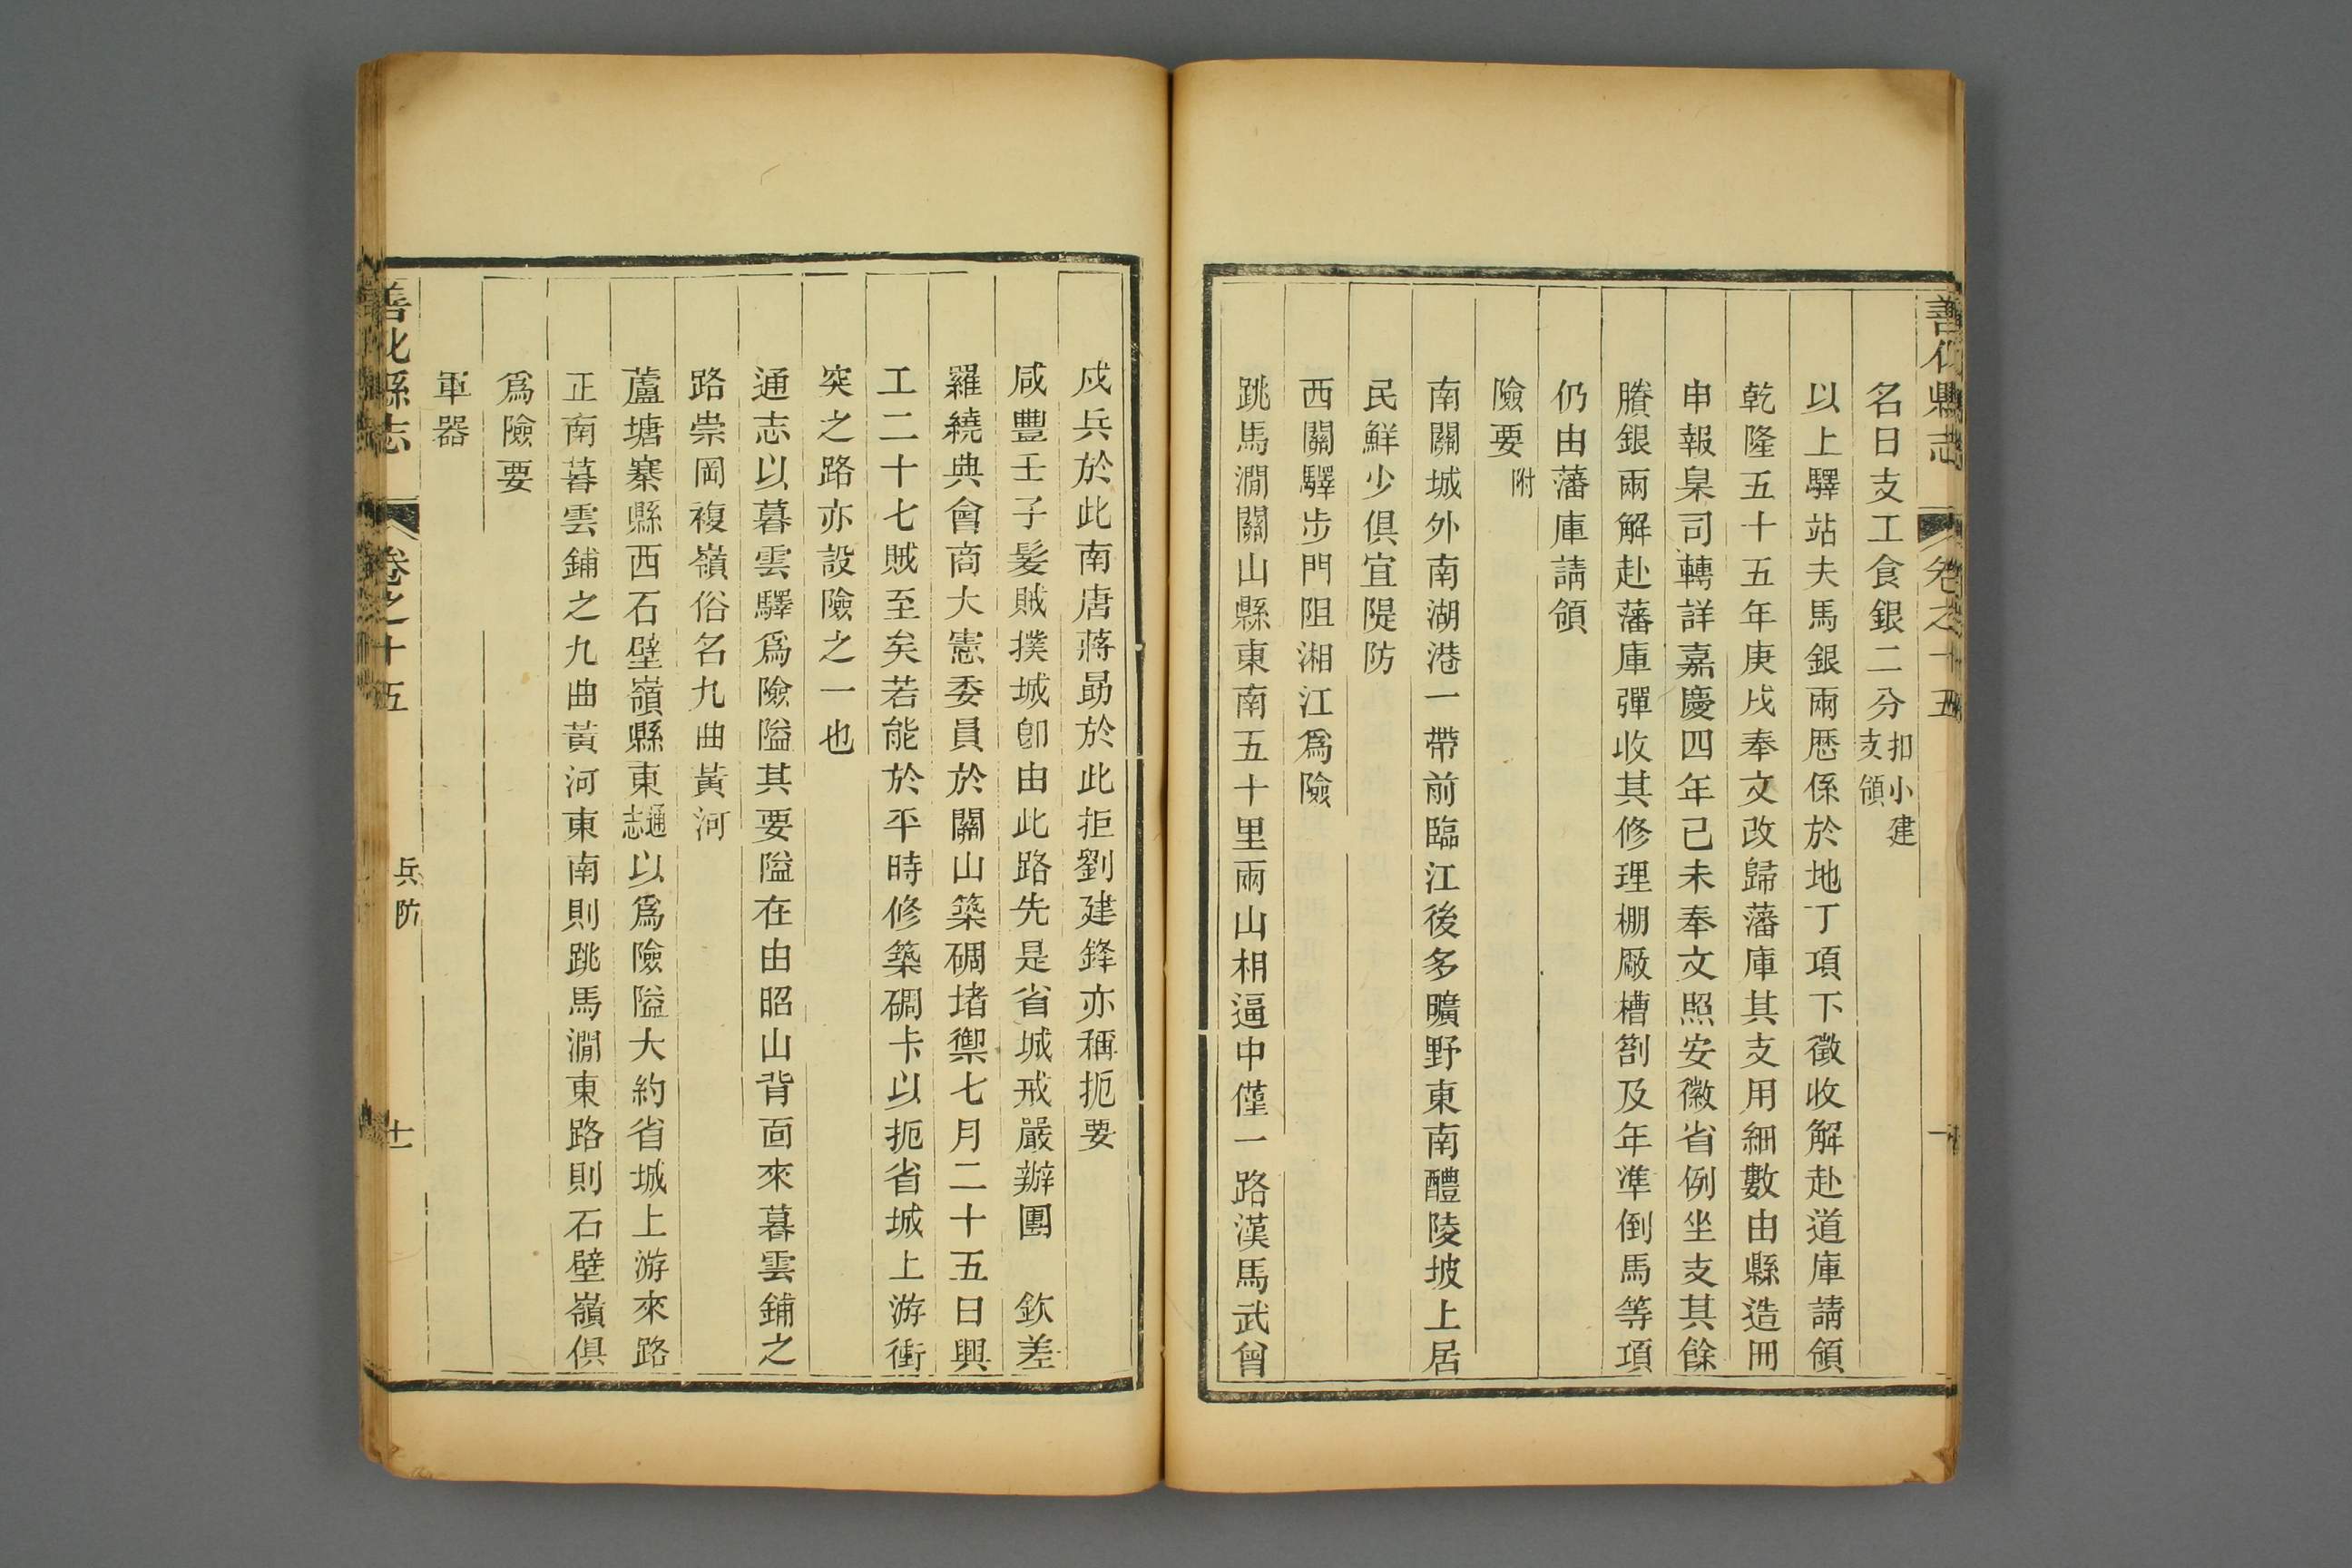 善化縣志 卷之十五
名日支工食銀二分扣小建支領
以上驛站夫馬銀兩歷係於地丁項下徵收解赴道庫請領
乾隆五十五年庚戌奉文改歸藩庫其支用細數由縣造冊
申報臬司轉詳嘉慶四年己未奉文照安徽省例坐支其餘
賸銀兩解赴藩庫彈收其修理棚厰槽劄及年準倒馬等項
仍由藩庫請領
險要附
南關城外南湖港一帶前臨江後多曠野東南醴陵坡上居
民鮮少俱宜隄防
西關驛步門阻湘江爲險
跳馬澗關山縣東南五十里兩山相逼中僅一路漢馬武曾
戍兵於此南唐蔣勛於此拒劉建鋒亦稱扼要
咸豐壬子髮賊撲城卽由此路先是省城戒嚴辦團 欽差
羅繞典會商大憲委員於關山築碉堵禦七月二十五日興
工二十七賊至矣若能於平時修築碉卡以扼省城上游衝
突之路亦設險之一也
通志以暮雲驛爲險隘其要隘在由昭山背面來暮雲鋪之
路崇岡複嶺俗名九曲黃河
蘆塘寨縣西石壁嶺縣東通志以爲險隘大約省城上游來路
正南暮雲鋪之九曲黃河東南則跳馬澗東路則石壁嶺俱
爲險要
軍器
善化縣志 卷之十五 兵防 十一